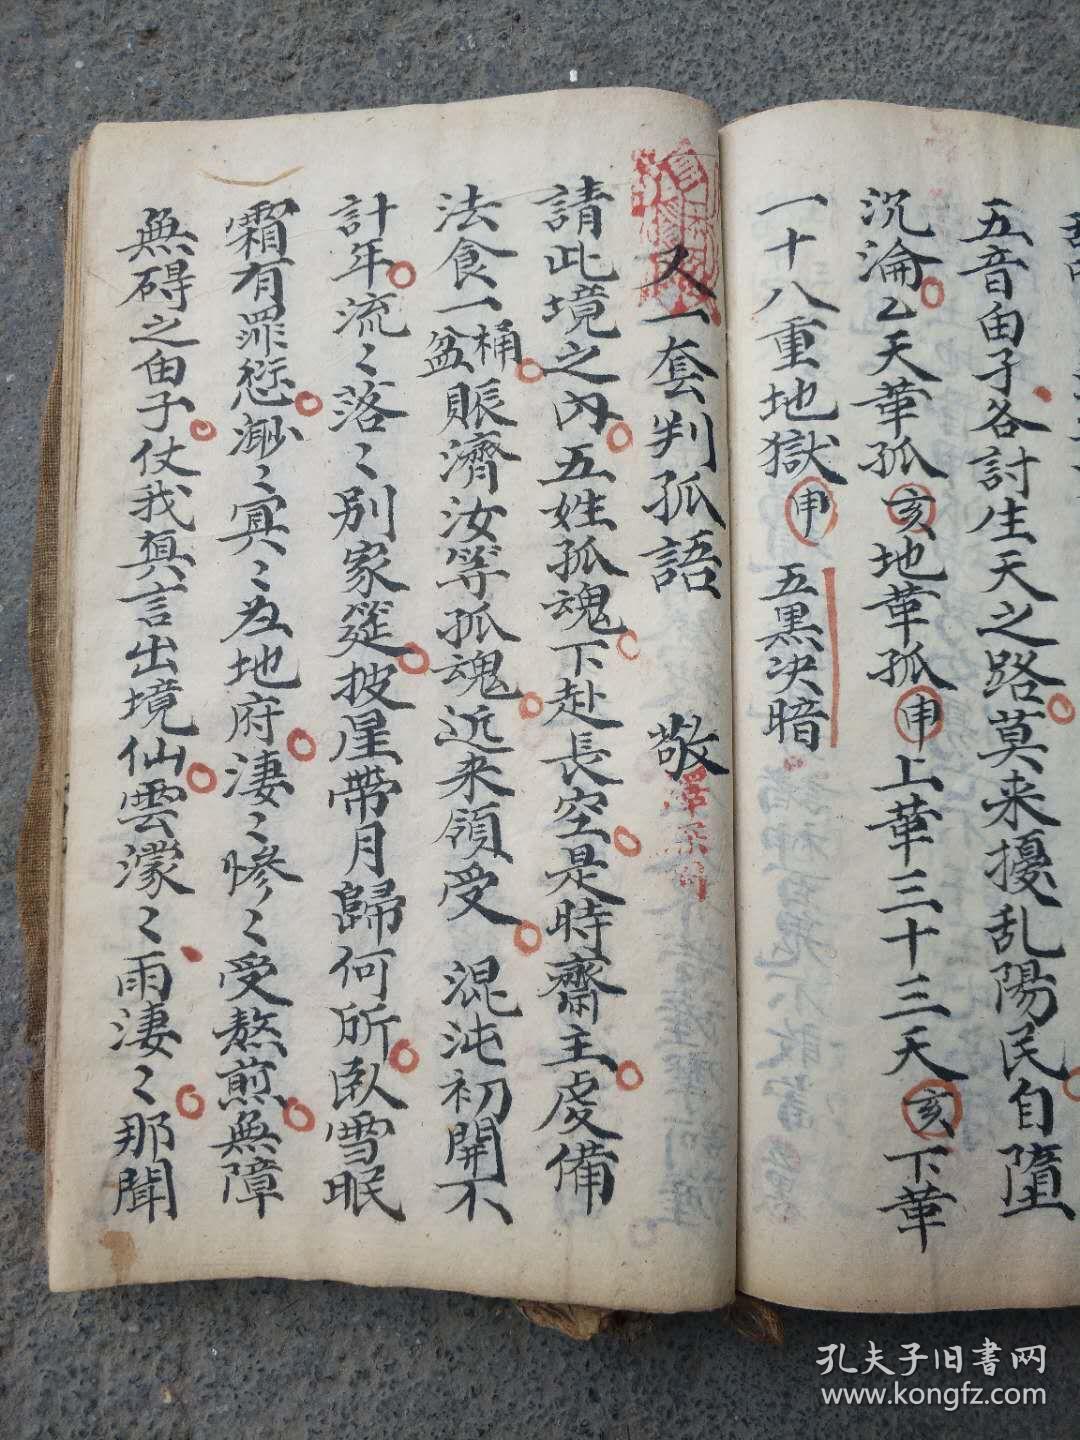 五音由子各討生天之路莫来擾乱陽民自墮
沉淪乙天華孤亥地華孤申上華三十三天亥下華
一十八重地獄申 五黑决暗
又一套判孤語 敬
請此境之内五姓孤魂下赴長空是時齋主虔備
法食一桶盆賑濟汝等孤魂近来領受 混沌初開不
計年流〻落〻别家筵披星帶月歸何所臥雪眠
霜有罪愆渺〻冥〻為地府淒〻慘〻受熬煎無障
無碍之由子仗我真言出境仙雲濛〻雨淒〻那聞
孔夫子旧書网
www.kongfz.com